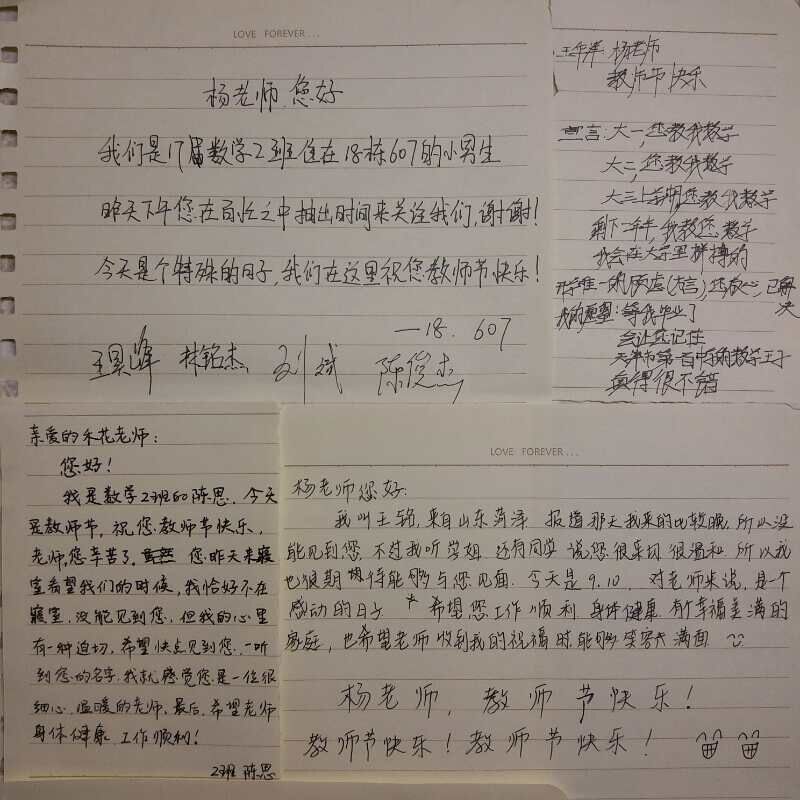 LOVE FOREVER...
杨老师 您好
我们是17届数学2班住在18栋607的小男生
昨天下午您在百忙之中抽出时间来关注我们,谢谢!
今天是个特殊的日子,我们在这里祝您教师节快乐!
—18. 607
王昊峰 林铭杰 刘斌 陈俊杰
杨老师
教师节快乐
宣言:大一,您教我数学
大二,您教我数学
大三上学期,您教我数学
剩下一年半,我教您数学
我会在大学里拼搏的
我的愿望:等我毕业了
会让您记住
真得很不错
亲爱的禾花老师:
您好!
我是数学2班的陈思.今天
是教师节,祝您教师节快乐,
老师,您辛苦了. 您昨天来寝
室看望我们的时候,我恰好不在
寝室,没能见到您,但我的心里
有一种迫切,希望快点见到您,一听
到您的名字,我就感觉您是一位很
细心,温暖的老师,最后,希望老师
身体健康,工作顺利!
2班 陈思
LOVE FOREVER...
杨老师您好:
我叫王铭,来自山东菏泽 报道那天我来的比较晚,所以没
能见到您,不过我听学姐,还有同学 说您很亲切 很温和 所以我
也很期待能够与您见面. 今天是9.10, 对老师来说,是一个
感动的日子 * 希望您工作顺利 身体健康 有个幸福美满的
家庭, 也希望老师收到我的祝福时,能够笑容满面.
杨老师, 教师节快乐!
教师节快乐! 教师节快乐!